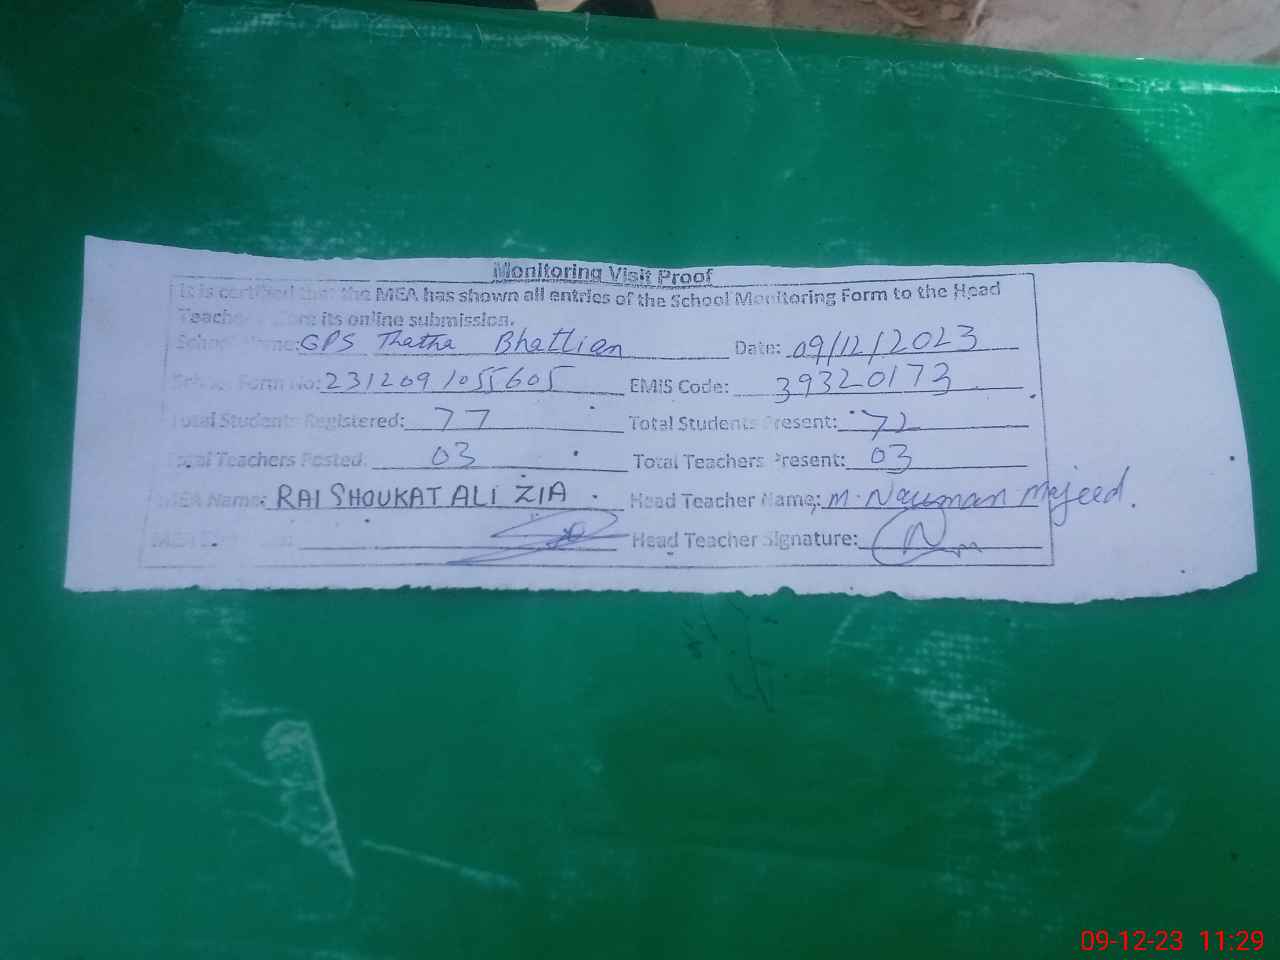 Monitoring Visit Proof
It is certified that the MEA has shown all entries of the School Monitoring Form to the Head
Teacher its online submission.
School Name: GPS Thatha Bhattian Date: 09/12/2023
School Form No: 2312091055605 EMIS Code: 39320173
Total Students Registered: 77 Total Students Present: 72
Total Teachers Posted: 03 Total Teachers Present: 03
MEA Name: RAI SHOUKAT ALI ZIA . Head Teacher Name: M. Nauman Majeed.
MEA Head Teacher Signature:
09-12-23 11:29